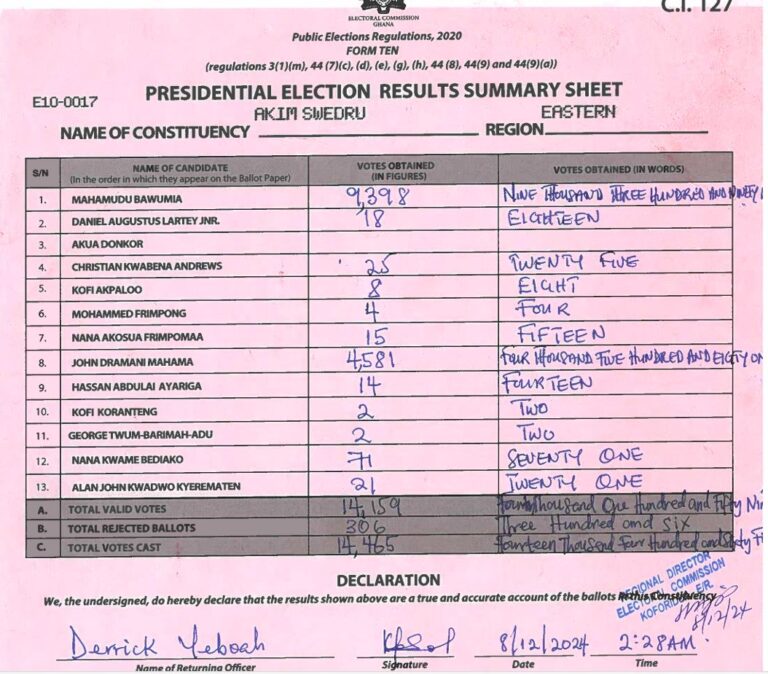 C.I. 127
ELECTORAL COMMISSION
GHANA
Public Elections Regulations, 2020
FORM TEN
(regulations 3(1)(m), 44 (7)(c), (d), (e), (g), (h), 44 (8), 44(9) and 44(9)(a))
E10-0017
PRESIDENTIAL ELECTION RESULTS SUMMARY SHEET
NAME OF CONSTITUENCY AKIM SWEDRU REGION EASTERN
S/N NAME OF CANDIDATE (In the order in which they appear on the Ballot Paper) VOTES OBTAINED (IN FIGURES) VOTES OBTAINED (IN WORDS)
1. MAHAMUDU BAWUMIA 9,398 NINE THOUSAND THREE HUNDRED AND NINETY
2. DANIEL AUGUSTUS LARTEY JNR. 18 EIGHTEEN
3. AKUA DONKOR
4. CHRISTIAN KWABENA ANDREWS 25 TWENTY FIVE
5. KOFI AKPALOO 8 EIGHT
6. MOHAMMED FRIMPONG 4 FOUR
7. NANA AKOSUA FRIMPOMAA 15 FIFTEEN
8. JOHN DRAMANI MAHAMA 4,581 FOUR THOUSAND FIVE HUNDRED AND EIGHTY ON
9. HASSAN ABDULAI AYARIGA 14 FOURTEEN
10. KOFI KORANTENG 2 TWO
11. GEORGE TWUM-BARIMAH-ADU 2 TWO
12. NANA KWAME BEDIAKO 71 SEVENTY ONE
13. ALAN JOHN KWADWO KYEREMATEN 21 TWENTY ONE
A. TOTAL VALID VOTES 14,159 Fourteen Thousand One Hundred and Fifty Ni
B. TOTAL REJECTED BALLOTS 306 Three Hundred and Six
C. TOTAL VOTES CAST 14,465 Fourteen Thousand Four Hundred and Sixty Fi
DECLARATION
We, the undersigned, do hereby declare that the results shown above are a true and accurate account of the ballots in this Constituency
REGIONAL DIRECTOR
ELECTORAL COMMISSION
KOFORIDUA, E/R.
8/12/24
Derrick Yeboah 8/12/2024 2:28AM.
Name of Returning Officer Signature Date Time